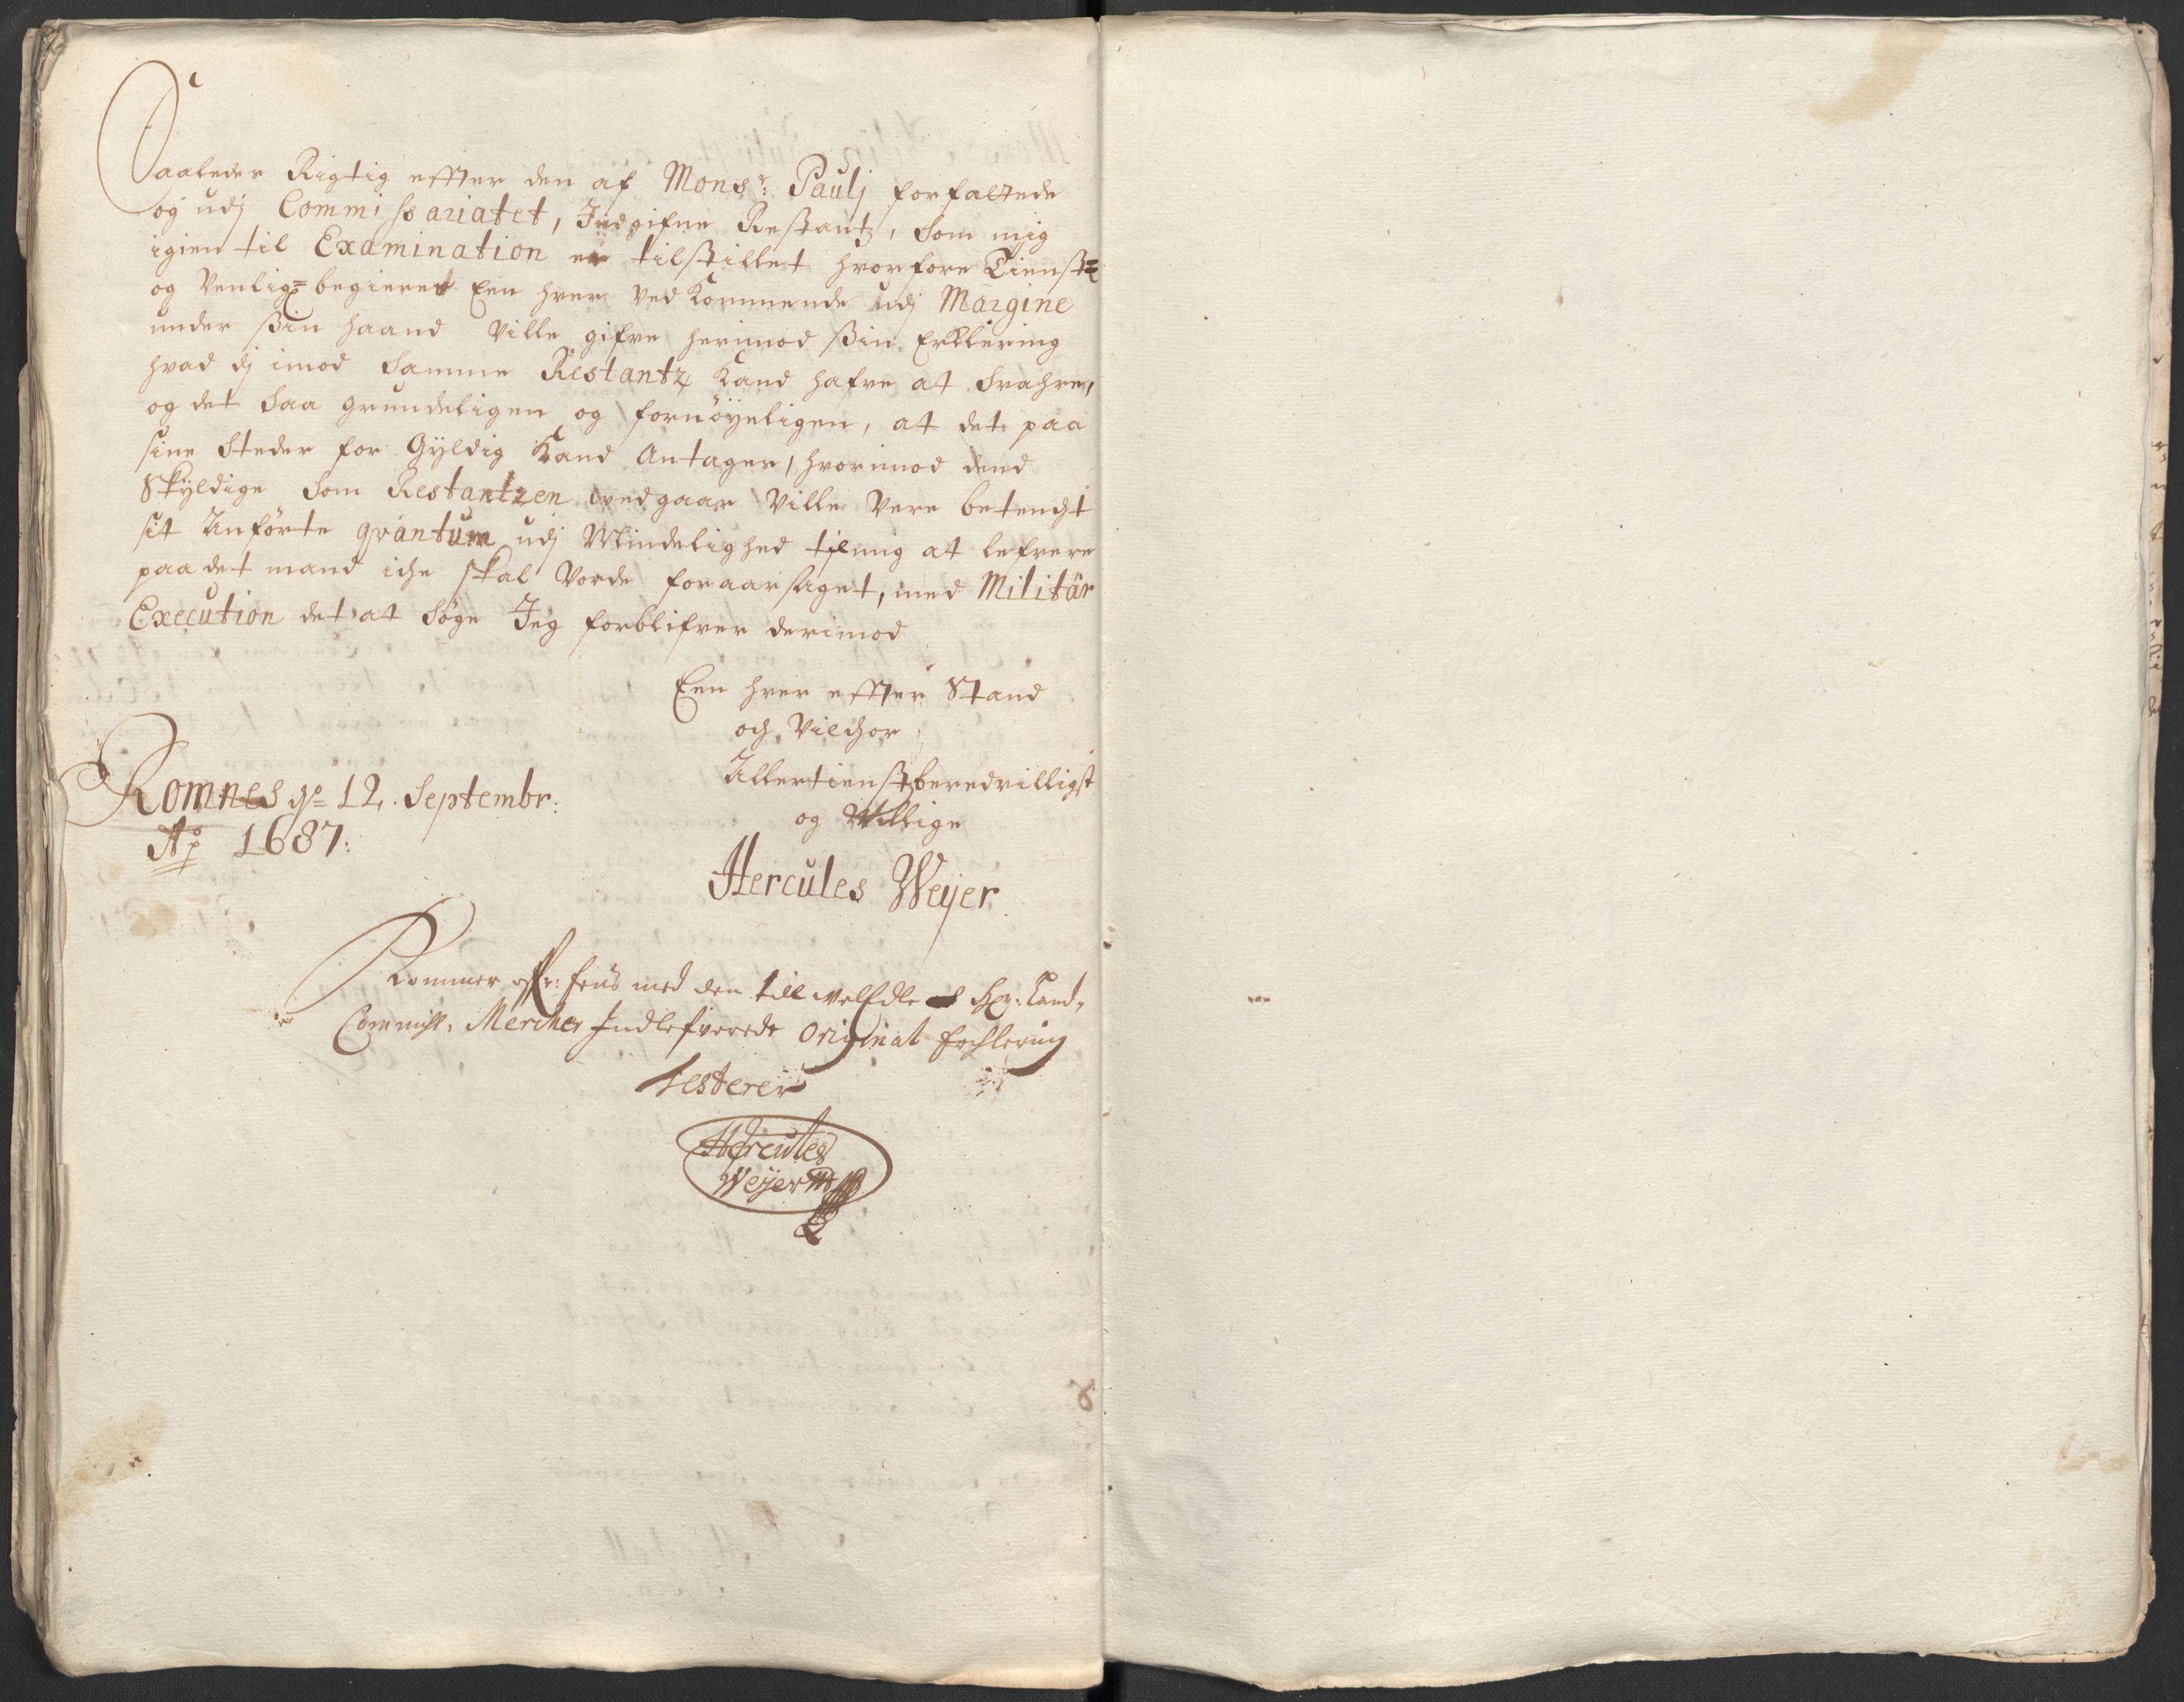 Saaleder Rigtig effter den af Monsr: Paulj forfattede
og udj Commissariatet, Indgifne Restantz, Som mig
igien til Examination er tilstillet hvorfore Tienst=
og Venlig= begieret Een hver Ved Kommende udj Margine
under sin haand Ville gifve herimod sin Erklering
hvad dj imod Samme Restantz Kand hafve at Svahre,
og det Saa grundeligen og fornöyeligen, at det paa
sine Steder for Gyldig Kand Antager, hvorimod dend
Skyldige Som Restantzen vedgaar Ville Vere betencht
sit Anförte qvantum udj Mindelighed til mig at lefvere
paa det mand iche skal Vorde foraarsaget, med Militär
Execution det at Söge Jeg forblifver derimod
Een hver effter Stand
och Vilchor
Allertienstberedvilligst
og Willige
Romnes d: 12. Septembr:
Ao 1687:
Hercules Weyer
Kommer ofver: Eens med den till velEdle Hr: Land,
Commiss: Mercker Indlefverede Original Erchlering
Testerer
Hercules
Weyer